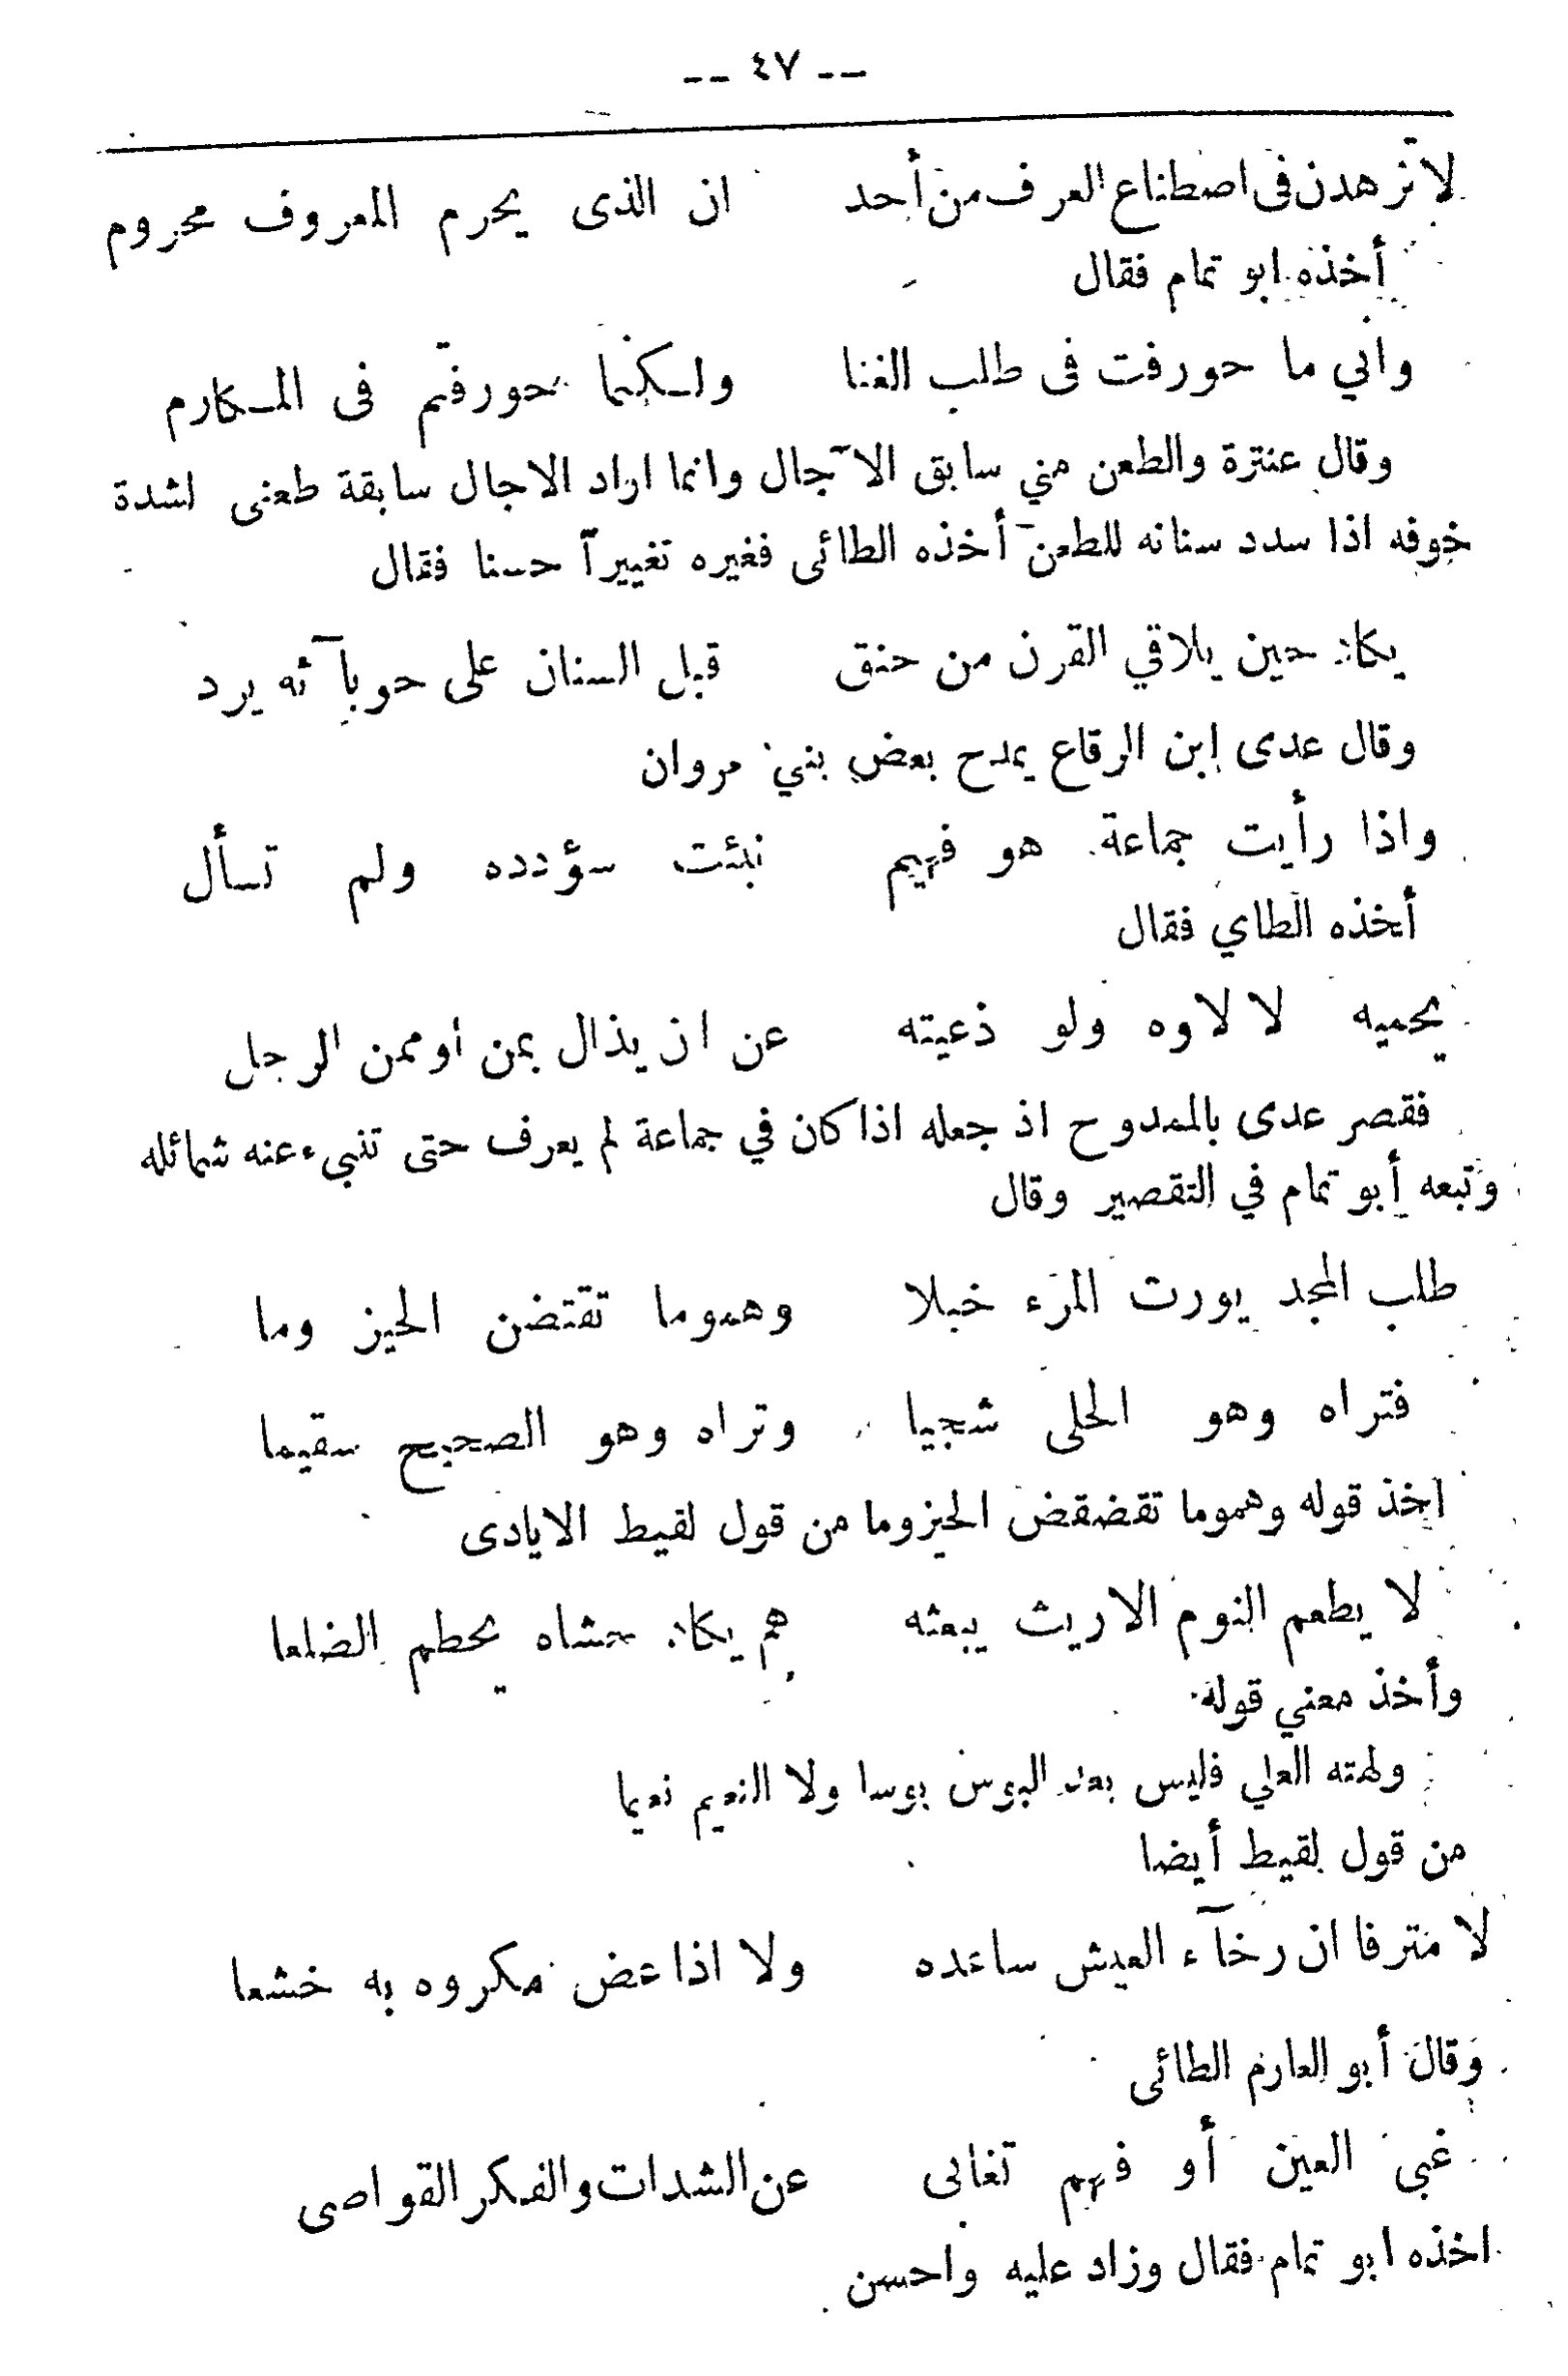 -- ٤٧ --
لا تزهدن فى اصطناع العرف من أحد ان الذى يحرم المعروف محروم
أخذه ابو تمام فقال
وانى ما حورفت فى طلب الغنا ولكنما حورفتم فى المكارم
وقال عنترة والطعن مني سابق الآجال وانما اراد الاجال سابقة طعنى لشدة
خوفه اذا سدد سنانه للطعن أخذه الطائى فغيره تغييرآ حسنا فقال
يكاد حين يلاقي القرن من حنق قبل السنان على حوبآئه يرد
وقال عدى ابن الرقاع يمدح بعض بني مروان
واذا رأيت جماعة هو فهيم نبئت سؤدده ولم تسأل
أخذه الطاي فقال
يحميه لا لاوه ولو ذعيته عن ان يذال بمن اوممن الرجل
فقصر عدى بالممدوح اذ جعله اذا كان في جماعة لم يعرف حتى تنبىء عنه شمائله
وتبعه أبو تمام في التقصير وقال
طلب المجد يورث المرء خبلا وهموما تقتضن الحيز وما
فتراه وهو الخلى شجيا وتراه وهو الصحيح سقيما
اخذ قوله وهموما تقضقض الحيزوما من قول لقيط الايادى
لا يطعم النوم الا ريث يبعثه هم يكاد حشاه يحطم الضلعا
وأخذ معني قوله
ولهته العلي فليس بعد البوس بوسا ولا النعيم نعيما
من قول لقيط أيضا
لا مترفا ان رخآء العيش ساعده ولا اذا عض مكروه به خشعا
وقال أبو العارم الطائى
غبى العين أو فهم تغابى عن الشدات والفكر القواصى
اخذه ابو تمام فقال وزاد عليه واحسن